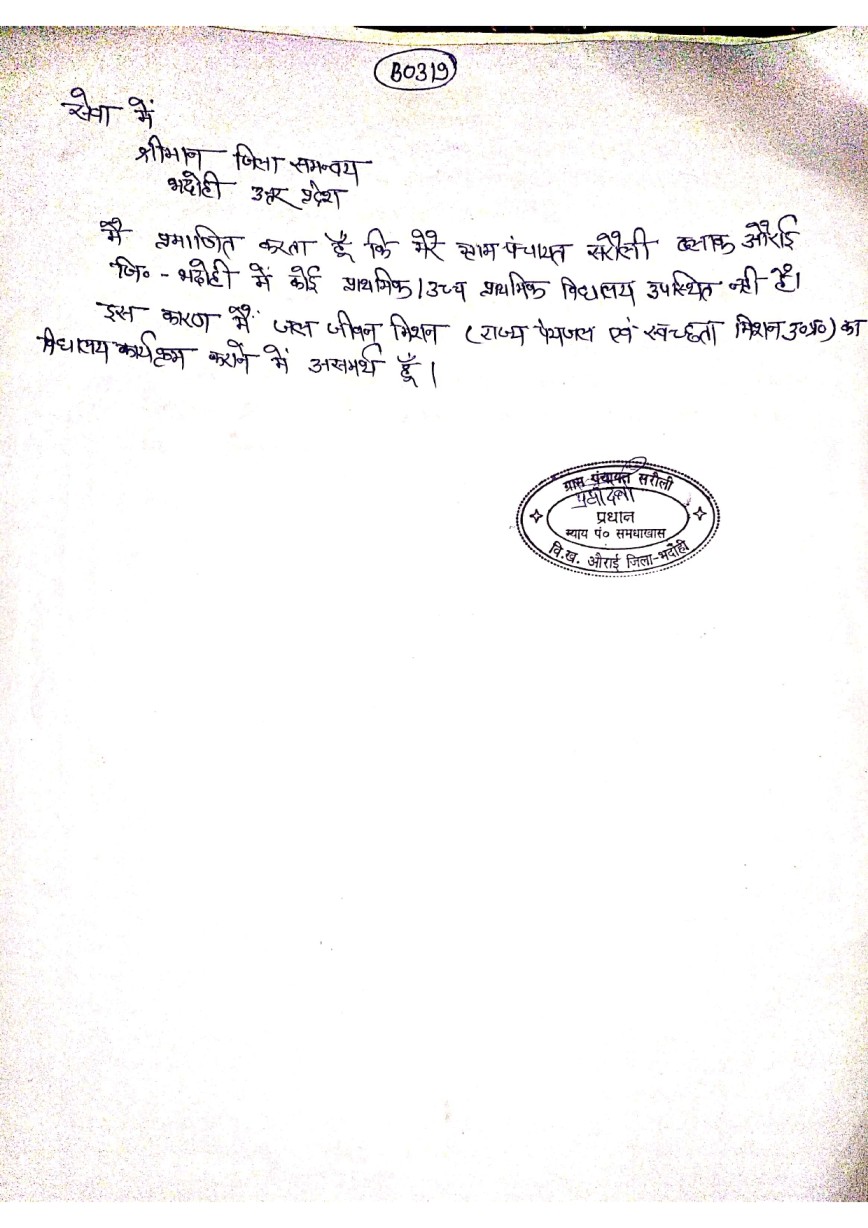 B0319
सेवा में
श्रीमान जिला समन्वय
भदोही उत्तर प्रदेश
मैं प्रमाणित करता हूँ कि मेरे ग्राम पंचायत सरौली ब्लाक औराई
जि० - भदोही में कोई प्राथमिक/उच्च प्राथमिक विद्यालय उपस्थित नही है।
इस कारण मैं जल जीवन मिशन (राज्य पेयजल एवं स्वच्छता मिशन उ०प्र०) का
विद्यालय कार्यक्रम कराने में असमर्थ हूँ।
ग्राम पंचायत सरौली
प्रधान
न्याय पं० समधाखास
वि.ख. औराई जिला-भदोही